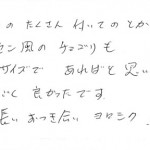 の たくさん 付いてのとか
セン風の ケマゴリも
サイズで あればと 思い
ごく 良かったです
長い おつき合い ヨロシク